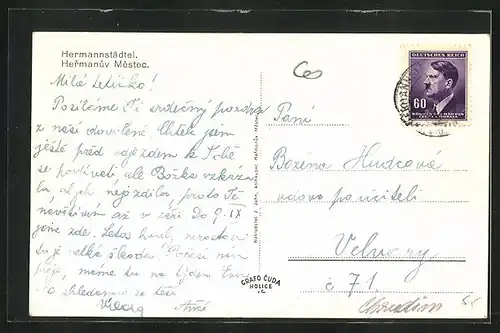 Hermannstädtel.
Heřmanův Městec.
Milá tetičko!
Posíláme Ti srdečný pozdrav
z naší dovolené. Chtěla jsem
ještě před odjezdem k Tobě
se podívati, ale Božka vzkáza-
la abych nejezdila, proto Tě
navštívím až v září. Do 9. IX
jsme zde. Letos houby nerostou
to je velká škoda. Počasí nám
přeje, máme tu na týden Evu
Na shledanou se těší
DEUTSCHES REICH
60
BÖHMEN UND MÄHREN
ČECHY A MORAVA
Paní
Božena Hudcová
vdova po učiteli
Velvary
č 71.
Chrudim
GRAFO ČUDA
HOLICE